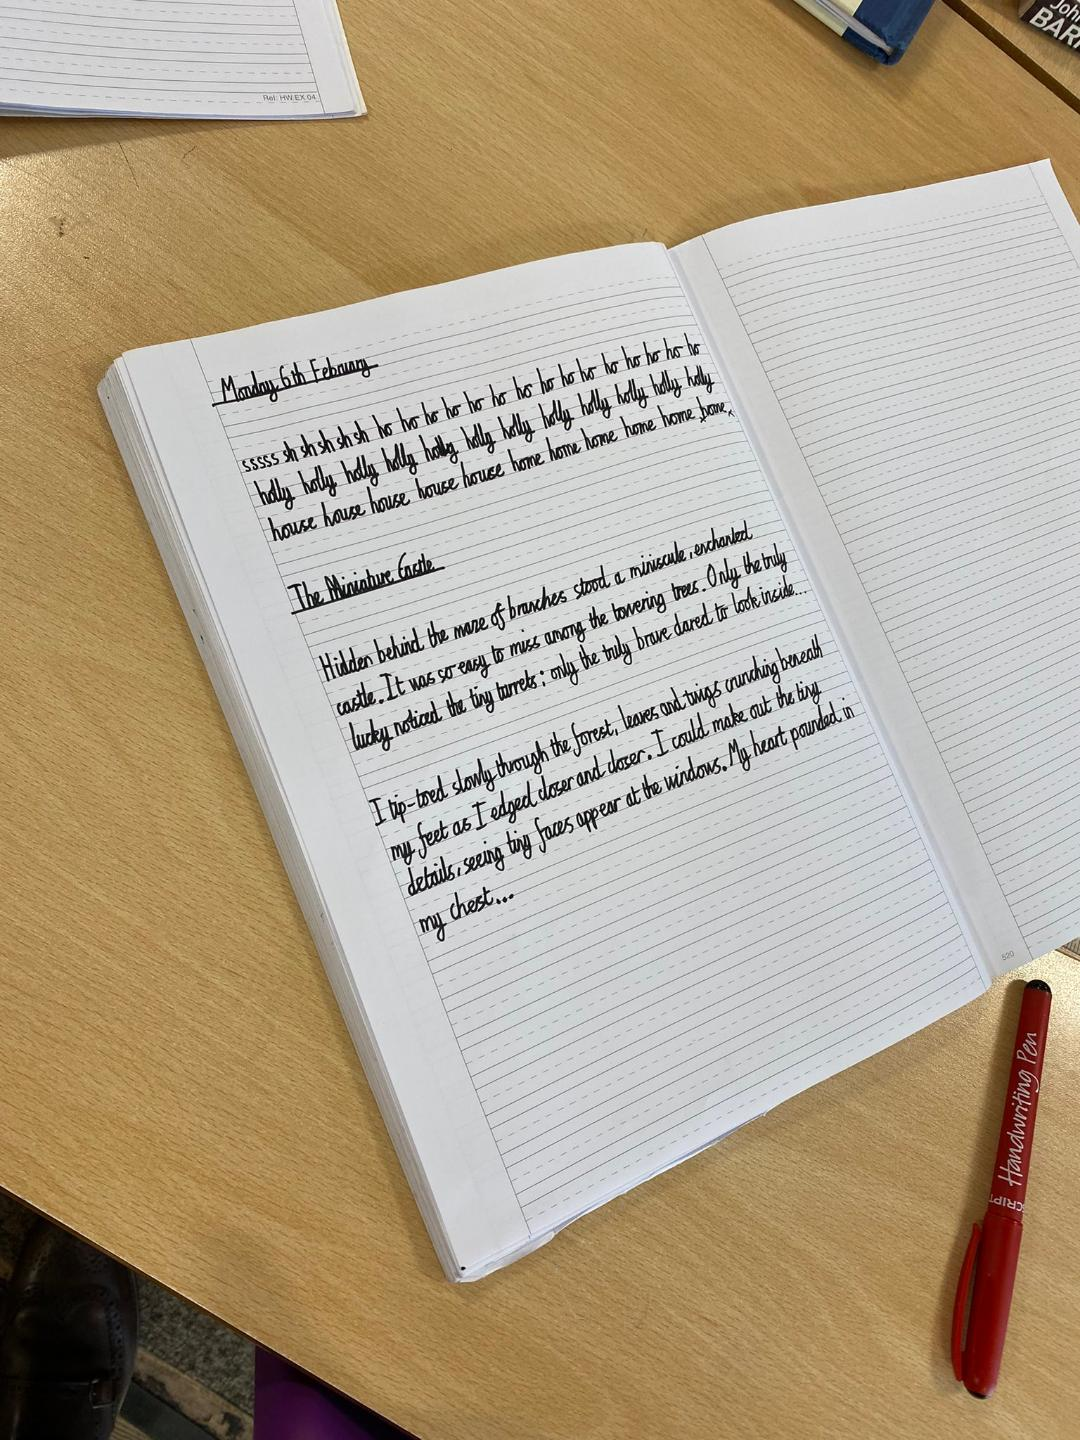 Ref: HW.EX 04
John
BAR
Monday 6th February
sssss sh sh sh sh sh ho ho ho ho ho ho ho ho ho ho ho ho ho ho ho
holly holly holly holly holly holly holly holly holly holly holly holly
house house house house house house home home home home home home
The Miniature Castle
Hidden behind the maze of branches stood a miniscule, enchanted
castle. It was so easy to miss among the towering trees. Only the truly
lucky noticed the tiny turrets; only the truly brave dared to look inside...
I tip-toed slowly through the forest, leaves and twigs crunching beneath
my feet as I edged closer and closer. I could make out the tiny
details, seeing tiny faces appear at the windows. My heart pounded in
my chest...
520
Handwriting Pen
CRIPT